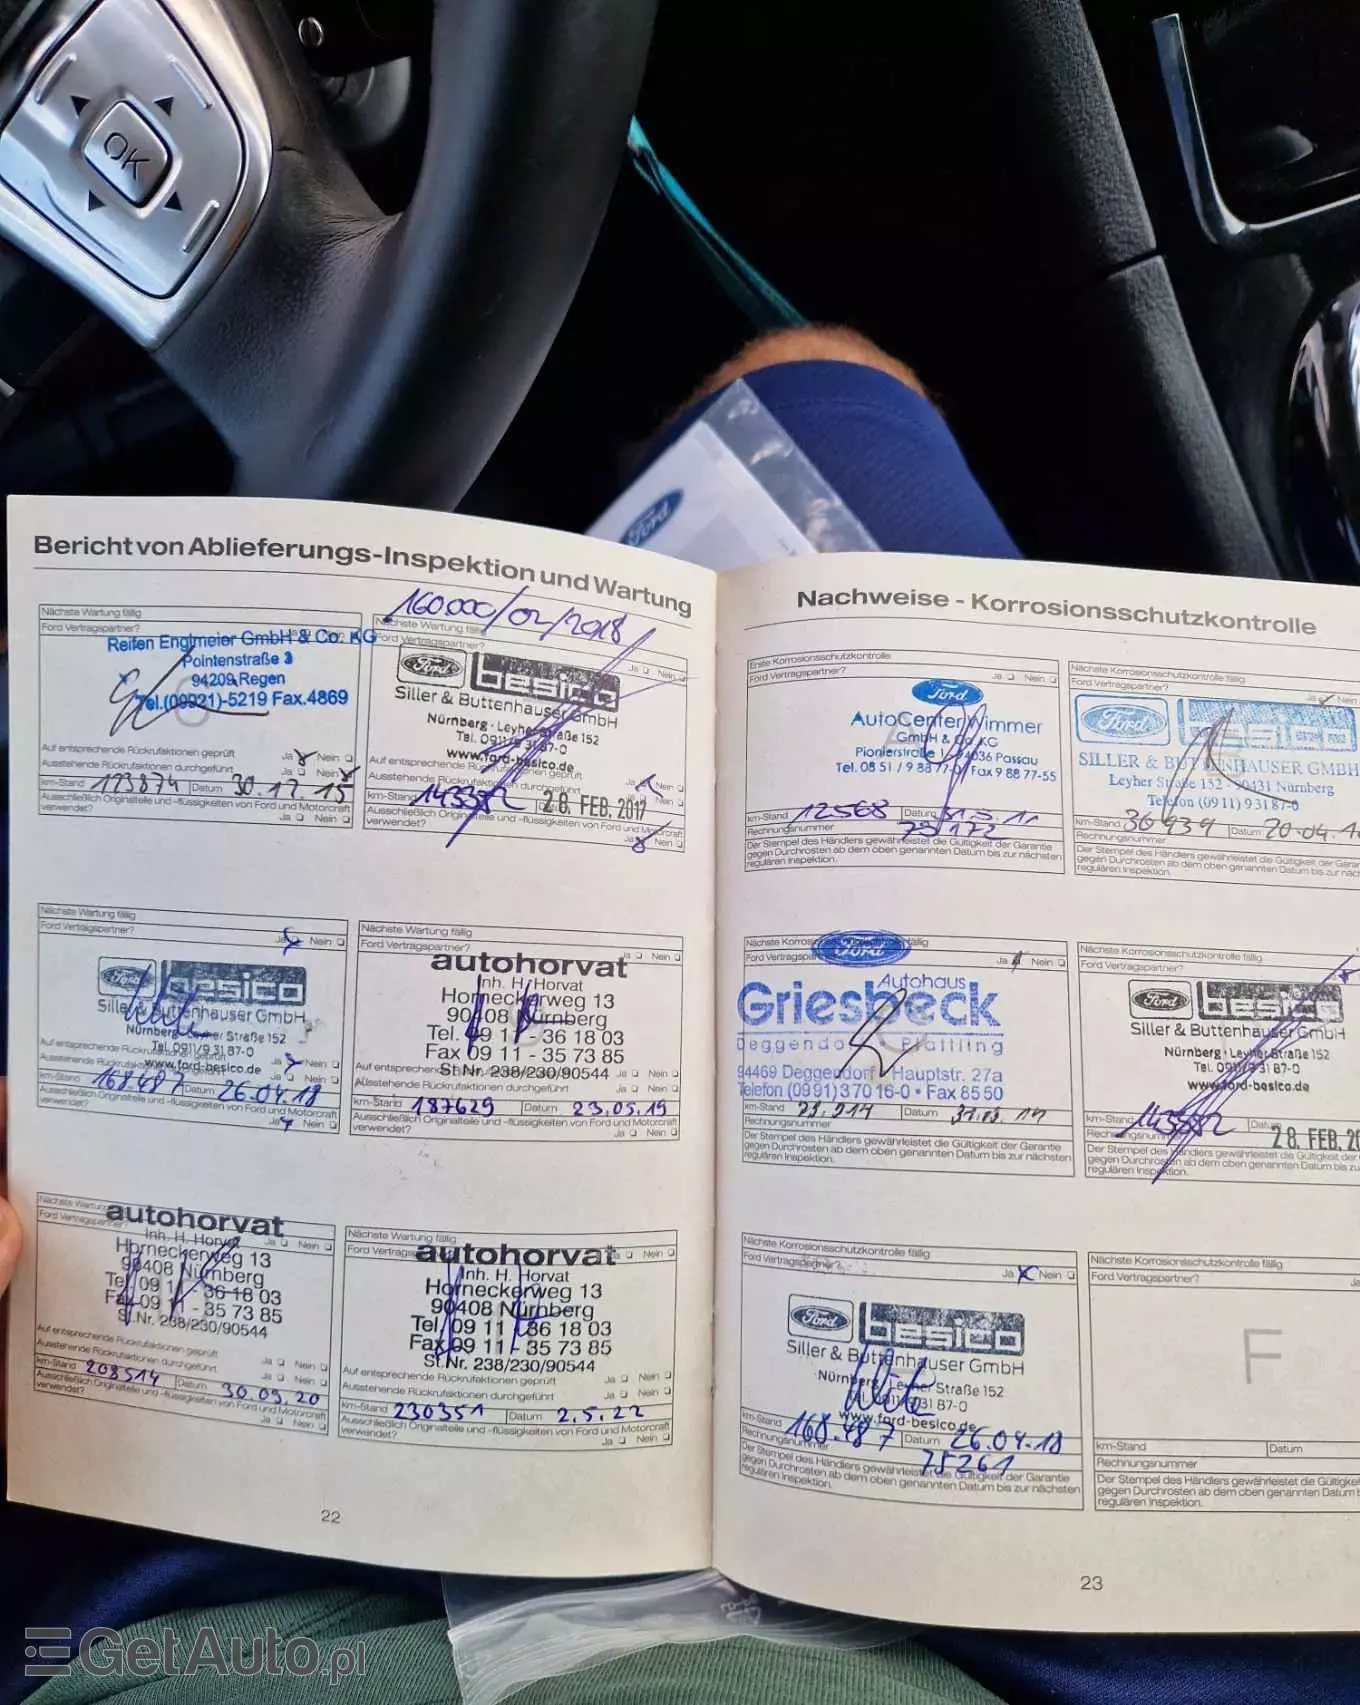 OK
Ford
Bericht von Ablieferungs-Inspektion und Wartung
160.000/02/2018
Nächste Wartung fällig
Ford Vertragspartner?
Reifen Englmeier GmbH & Co. KG
Pointenstraße 3
94209 Regen
Tel.(09921)-5219 Fax.4869
Auf entsprechende Rückrufaktionen geprüft Ja Nein
Ausstehende Rückrufaktionen durchgeführt Ja Nein
km-Stand 123874 Datum 30.12.15
Ausschließlich Originalteile und -flüssigkeiten von Ford und Motorcraft
verwendet? Ja Nein
Nächste Wartung fällig
Ford Vertragspartner? Ja Nein
Ford besico
Siller & Buttenhauser GmbH
Nürnberg · Leyher Straße 152
Tel. 0911/9 31 87-0
www.ford-besico.de
Auf entsprechende Rückrufaktionen geprüft Ja Nein
Ausstehende Rückrufaktionen durchgeführt Ja Nein
km-Stand 143382 Datum 28. FEB. 2017
Ausschließlich Originalteile und -flüssigkeiten von Ford und Motorcraft
verwendet? Ja Nein
Nächste Wartung fällig
Ford Vertragspartner? Ja Nein
Ford besico
Siller & Buttenhauser GmbH
Nürnberg · Leyher Straße 152
Tel. 0911/9 31 87-0
www.ford-besico.de
Auf entsprechende Rückrufaktionen geprüft Ja Nein
Ausstehende Rückrufaktionen Ja Nein
km-Stand 168487 Datum 26.04.18
Ausschließlich Originalteile und -flüssigkeiten von Ford und Motorcraft
verwendet? Ja Nein
Nächste Wartung fällig
Ford Vertragspartner? Ja Nein
autohorvat
Inh. H. Horvat
Horneckerweg 13
90408 Nürnberg
Tel. 09 11 - 36 18 03
Fax 09 11 - 35 73 85
St.Nr. 238/230/90544
Auf entsprechende Ja Nein
Ausstehende Rückrufaktionen durchgeführt Ja Nein
km-Stand 187629 Datum 23.05.19
Ausschließlich Originalteile und -flüssigkeiten von Ford und Motorcraft
verwendet? Ja Nein
Nächste Wartung
Ford Vertragspartner? Ja Nein
autohorvat
Inh. H. Horvat
Horneckerweg 13
90408 Nürnberg
Tel. 09 11 - 36 18 03
Fax 09 11 - 35 73 85
St.Nr. 238/230/90544
Auf entsprechende Rückrufaktionen geprüft Ja Nein
Ausstehende Rückrufaktionen durchgeführt Ja Nein
km-Stand 208514 Datum 30.09.20
Ausschließlich Originalteile und -flüssigkeiten von Ford und Motorcraft
verwendet? Ja Nein
Nächste Wartung fällig
Ford Vertragspartner? Ja Nein
autohorvat
Inh. H. Horvat
Horneckerweg 13
90408 Nürnberg
Tel. 09 11 - 36 18 03
Fax 09 11 - 35 73 85
St.Nr. 238/230/90544
Auf entsprechende Rückrufaktionen geprüft Ja Nein
Ausstehende Rückrufaktionen durchgeführt Ja Nein
km-Stand 230351 Datum 2.5.22
Ausschließlich Originalteile und -flüssigkeiten von Ford und Motorcraft
verwendet? Ja Nein
22
Nachweise - Korrosionsschutzkontrolle
Erste Korrosionsschutzkontrolle
Ford Vertragspartner? Ja Nein
Ford
AutoCenter Wimmer
GmbH & Co. KG
Pionierstraße 1 · 94036 Passau
Tel. 08 51 / 9 88 77-0 Fax 9 88 77-55
km-Stand 12568 Datum
Rechnungsnummer
Der Stempel des Händlers gewährleistet die Gültigkeit der Garantie
gegen Durchrosten ab dem oben genannten Datum bis zur nächsten
regulären Inspektion.
Nächste Korrosionsschutzkontrolle fällig
Ford Vertragspartner? Ja Nein
Ford besico
SILLER & BUTTENHAUSER GMBH
Leyher Straße 152 - 90431 Nürnberg
Telefon (0911) 93187-0
km-Stand 36939 Datum 20.04.1
Rechnungsnummer
Der Stempel des Händlers gewährleistet die Gültigkeit der
gegen Durchrosten ab dem oben genannten Datum bis zur
regulären Inspektion.
Nächste fällig
Ford Ja Nein
Ford
Autohaus
Griesbeck
Deggendorf · Plattling
94469 Deggendorf · Hauptstr. 27a
Telefon (0991) 370 16-0 • Fax 85 50
km-Stand Datum
Rechnungsnummer
Der Stempel des Händlers gewährleistet die Gültigkeit der Garantie
gegen Durchrosten ab dem oben genannten Datum bis zur nächsten
regulären Inspektion.
Nächste Korrosionsschutzkontrolle fällig
Ford Vertragspartner?
Ford besico
Siller & Buttenhauser GmbH
Nürnberg · Leyher Straße 152
Tel. 0911/9 31 87-0
www.ford-besico.de
km-Stand 143382 28. FEB. 20
Rechnungsnummer
Der Stempel des Händlers gewährleistet die Gültigkeit der
gegen Durchrosten ab dem oben genannten Datum bis
regulären Inspektion.
Nächste Korrosionsschutzkontrolle fällig
Ford Vertragspartner? Ja Nein
Ford besico
Siller & Buttenhauser GmbH
Nürnberg · Leyher Straße 152
Tel. 0911/9 31 87-0
www.ford-besico.de
km-Stand 168.487 Datum 26.04.18
Rechnungsnummer 75261
Der Stempel des Händlers gewährleistet die Gültigkeit der Garantie
gegen Durchrosten ab dem oben genannten Datum bis zur nächsten
regulären Inspektion.
Nächste Korrosionsschutzkontrolle fällig
Ford Vertragspartner? Ja
F
km-Stand Datum
Rechnungsnummer
Der Stempel des Händlers gewährleistet die Gültigkeit
gegen Durchrosten ab dem oben genannten Datum
regulären Inspektion.
23
GetAuto.pl